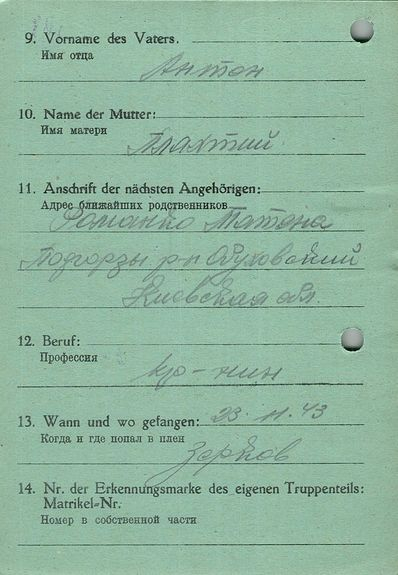 9. Vorname des Vaters.
Имя отца
Антон
10. Name der Mutter:
Имя матери
Плахтий
11. Anschrift der nächsten Angehörigen:
Адрес ближайших родственников
Романко Татяна
Подгорцы р-н Обуховский
Киевская обл.
12. Beruf:
Профессия
кр-нин
13. Wann und wo gefangen: 23.11.43
Когда и где попал в плен
14. Nr. der Erkennungsmarke des eigenen Truppenteils:
Matrikel-Nr.
Номер в собственной части